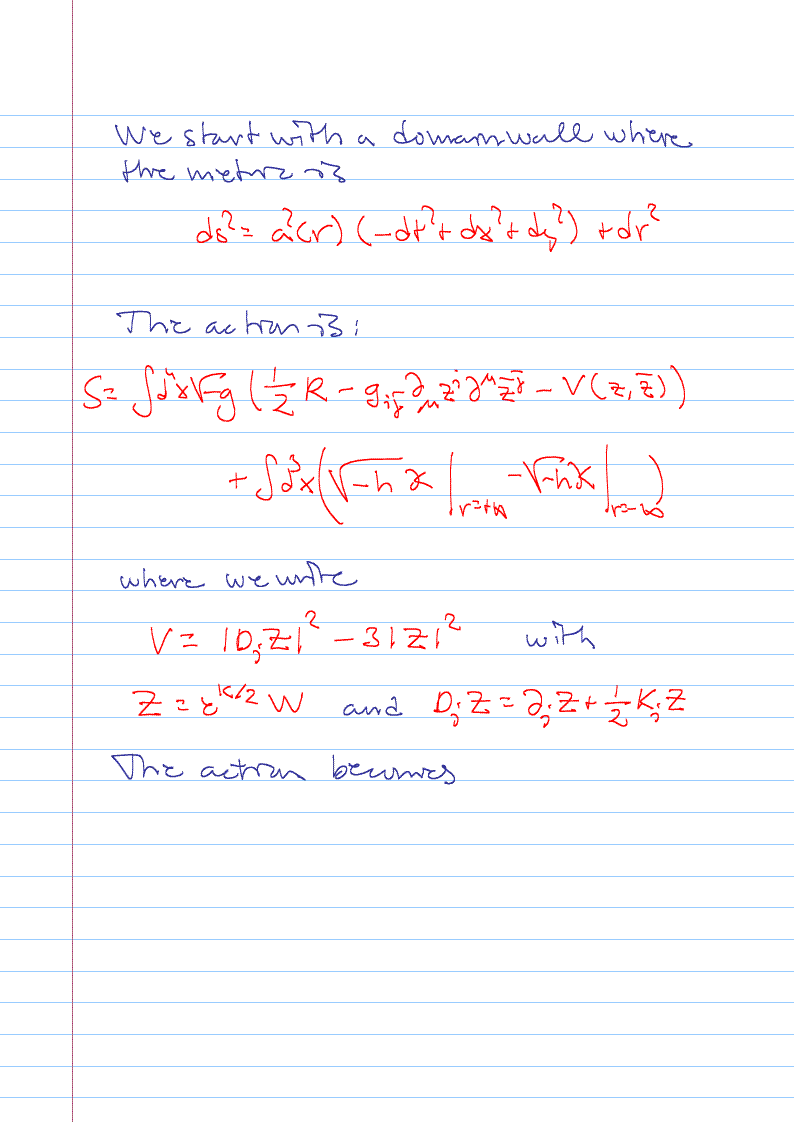 We start with a domain wall where
the metric is
ds² = a²(r) (-dt² + dx² + dy²) + dr²
The action is:
S = ∫d⁴x√-g (½ R - g_{ij̄} ∂_μ z^i ∂^μ z̄^j̄ - V(z, z̄))
+ ∫d³x(√-h K |_{r=+∞} - √-h K |_{r=-∞})
where we write
V = |D_j Z|² - 3|Z|² with
Z = e^{K/2} W and D_j Z = ∂_j Z + ½ K_j Z
The action becomes